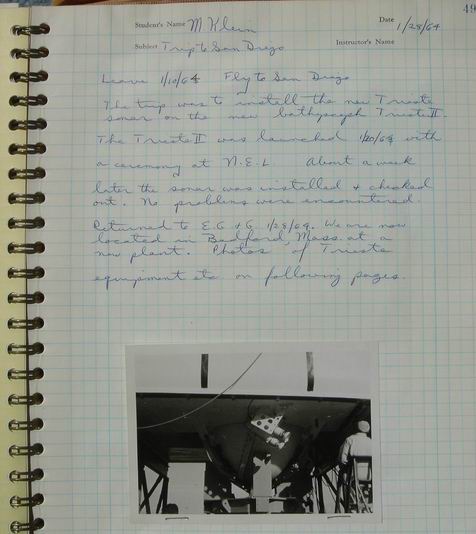 49
Student's Name M Klein Date 1/28/64
Subject Trip to San Diego Instructor's Name
Leave 1/10/64 Fly to San Diego
The trip was to install the new Trieste
sonar on the new bathyscaph Trieste II.
The Trieste II was launched 1/20/64 with
a ceremony at N.E.L. About a week
later the sonar was installed & checked
out. No problems were encountered.
Returned to E.G. & G. 1/28/64. We are now
located in Bedford, Mass. at a
new plant. Photos of Trieste
equipment etc on following pages.